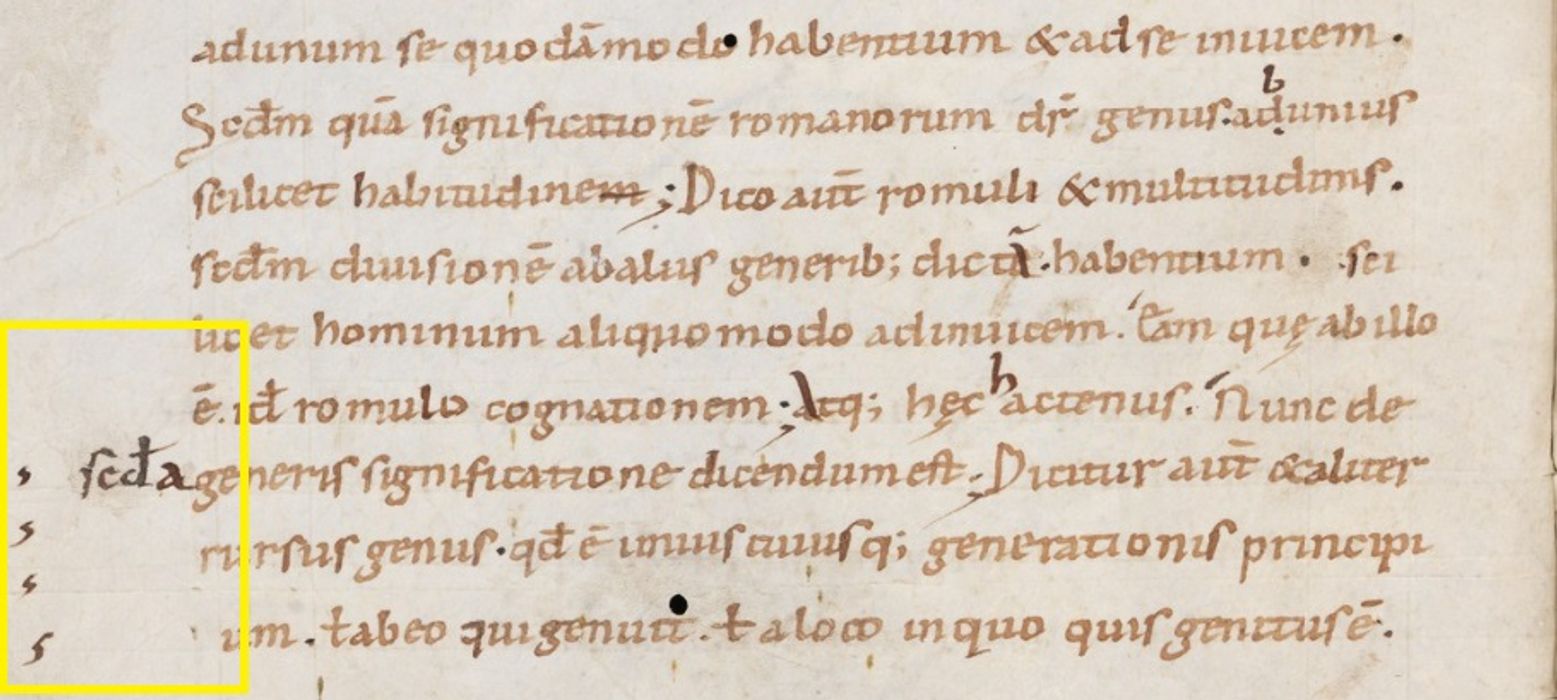 adunum se quodāmodo habentium &adse inuicem.
Scdm quā significationē romanorum dr̄ genus. adbunius
scilicet habitudinem; Dico aut̄ romuli & multitudinis.
scd̄m diuisionē abaliis generib; dictā. habentium. sci
licet hominum aliquomodo adinuicem. Eam quę abillo
ē. id̄ romulo cognationem; Atq; hęc hactenus. Nunc de
scd̄a generis significatione dicendumest; Dicitur aut̄ &aliter
rursus genus. qd̄ ē uniuscuiusq; generationis principi
um. ł abeo quigenuit. ł aloco inquo quis genitus ē.